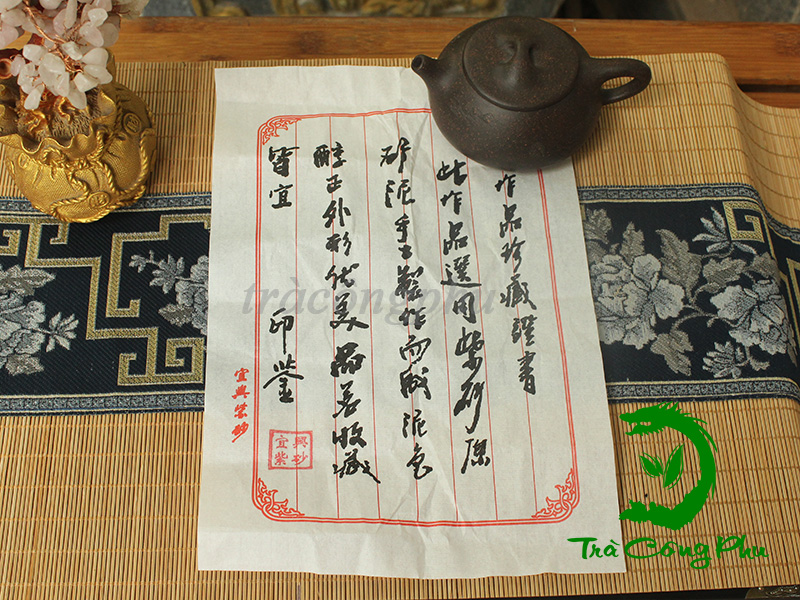 作品珍藏證書
此作品選用紫砂原
矿泥手工製作而成泥色
醇正外形优美品茗收藏
皆宜 印鑒
宜興紫砂
宜興
紫砂
tràcôngphu
Trà Công Phu